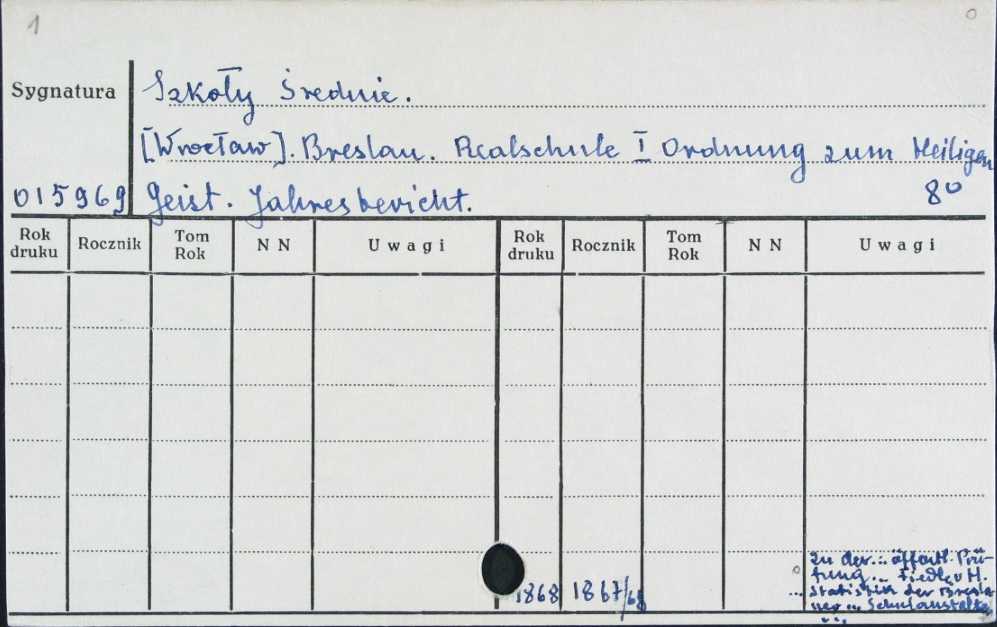 1 0
Sygnatura Szkoły Średnie.
[Wrocław]. Breslau. Realschule I Ordnung zum Heiligen
015969 Geist. Jahresbericht. 8º
Rok druku Rocznik Tom Rok N N Uwagi Rok druku Rocznik Tom Rok N N Uwagi
zu der... öffentl. Prü-
fung...
1868 1867/68 ... Statistik der Bresla-
uer... Schulanstalten